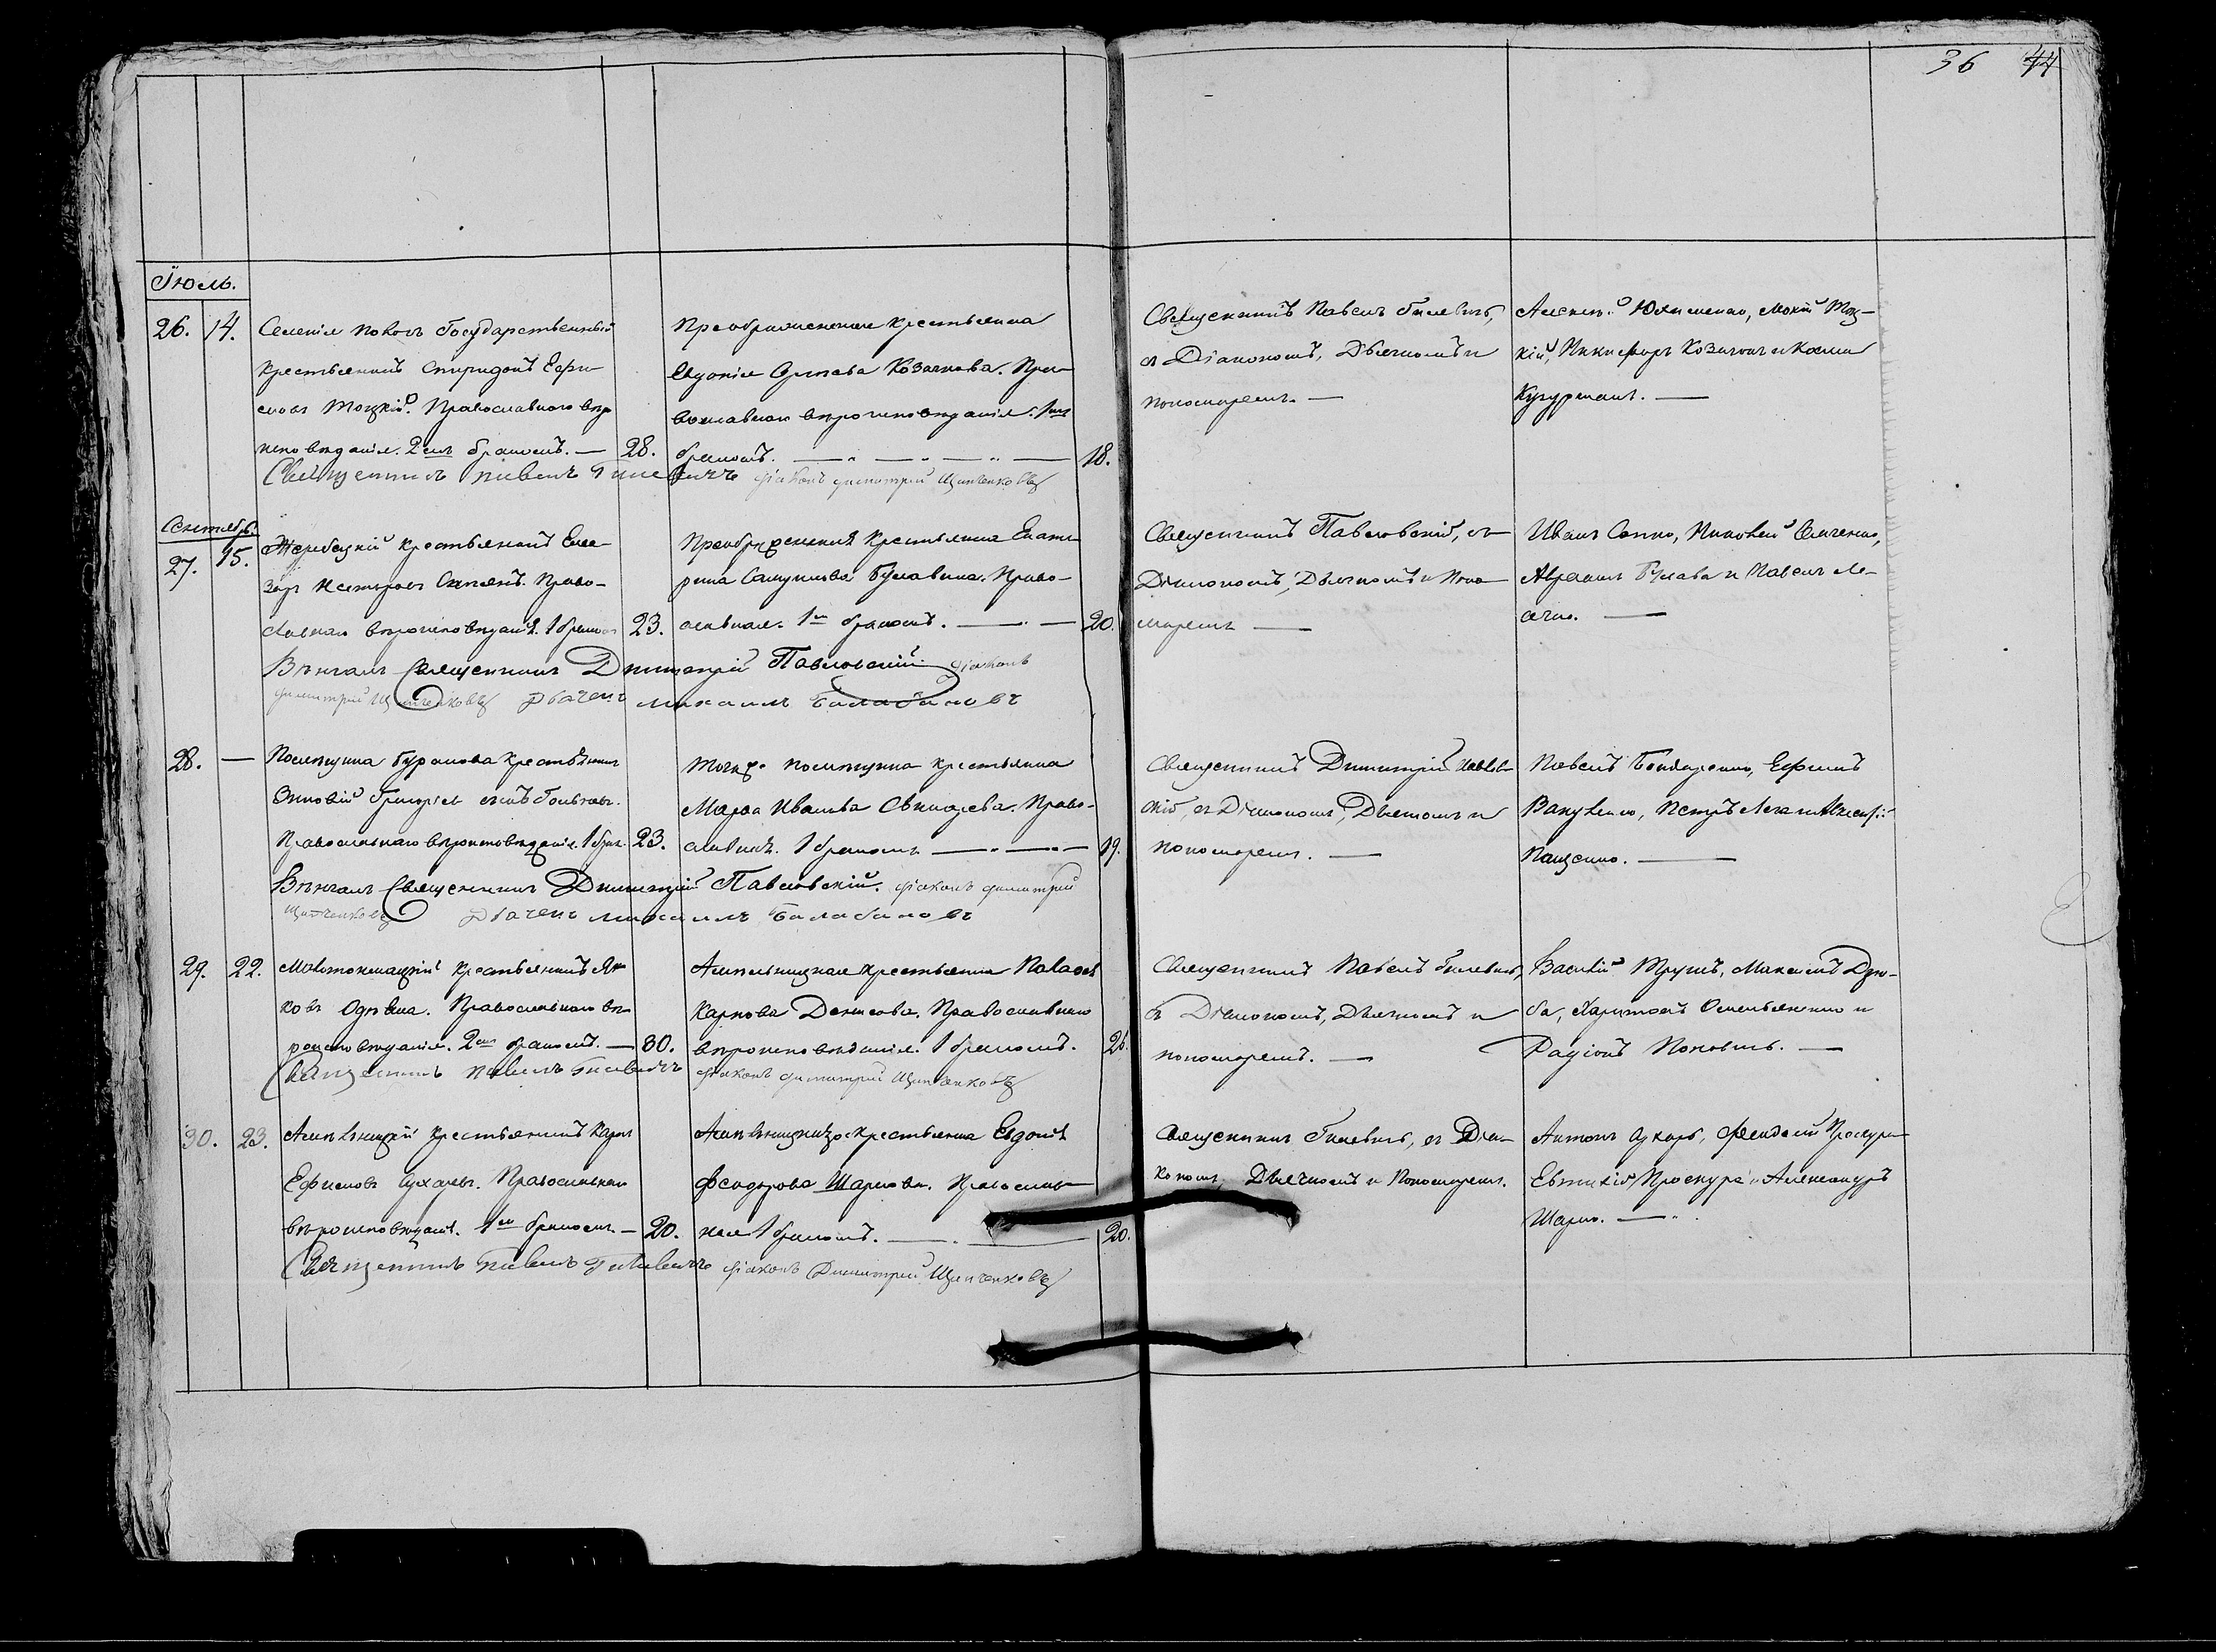 36 44
Іюль.
26. 14. Селенія Поповъ Государственный
крестьянинъ Спиридонъ Ефи-
мовъ Тоцкій. Православнаго вѣро
исповѣданія. 2мъ бракомъ. — 28.
Преображенская крестьянка
Евдокія Козачкова. Пра-
вославнаго вѣроисповѣданія. 1мъ
бракомъ. — 18.
Священникъ Павелъ Гилевичъ,
съ Діакономъ, Дьячкомъ и
пономаремъ. —
Юхименко, Мокій Тоц-
кій, Никифоръ Козачокъ и Косма
Священникъ Павелъ Гилевичъ діаконъ Димитрій Щипченковъ
Сентябрь
27. 15. Жеребецкій крестьянинъ Елеа-
заръ Нестеровъ Право-
славнаго вѣроисповѣданія. 1 бракомъ 23.
Преображенская крестьянка Екате-
рина Самуилова Булавина. Право-
славная. 1мъ бракомъ. — 20.
Священникъ Павловскій, съ
Діакономъ, Дьячкомъ и Поно-
маремъ —
Иванъ Сопко,
Авраамъ Булава и Павелъ Ле-
Вѣнчалъ Священникъ Димитрій Павловскій діаконъ
Димитрій Щипченковъ Дьячекъ Михаилъ Балабановъ
28. — Помѣщика Буракова крестьянинъ
Зиновій Григорьевъ сынъ
Православнаго вѣроисповѣданія. 1 брак. 23.
Тогоже помѣщика крестьянка
Марфа Иванова Право-
славная. 1 бракомъ — 19.
Священникъ Димитрій Павлов-
скій, съ Діакономъ, Дьячкомъ и
пономаремъ. —
Павелъ Бондаренко, Ефимъ
Вакуленко, Петръ Лега и Алексѣй
Пащенко. —
Вѣнчалъ Священникъ Димитрій Павловскій. діаконъ Димитрій
Щипченковъ Дьячекъ Михаилъ Балабановъ
29. 22. Малотокмацкій крестьянинъ Я-
ковъ Православнаго вѣ-
роисповѣданія. 2мъ бракомъ. — 30.
крестьянка
Карпова Денисова. Православнаго
вѣроисповѣданія. 1 бракомъ. 26.
Священникъ Павелъ Гилевичъ,
съ Діакономъ, Дьячкомъ и
пономаремъ. —
Василій Трушъ, Максимъ Дзю-
ба, Харитонъ Омельяненко и
Радіонъ Поповичъ. —
Священникъ Павелъ Гилевичъ діаконъ Димитрій Щипченковъ
30. 23. крестьянинъ Карпъ
Ефимовъ Православнаго
вѣроисповѣданія. 1мъ бракомъ — 20.
крестьянка Евдокія
Феодорова Шаркова. Православ-
ная 1 бракомъ. — 20.
Священникъ Гилевичъ, съ Діа-
кономъ, Дьячкомъ и Пономаремъ.
Антонъ Проскура
Евтихій Проскура и Александръ
Шарко. —
Священникъ Павелъ Гилевичъ діаконъ Димитрій Щипченковъ